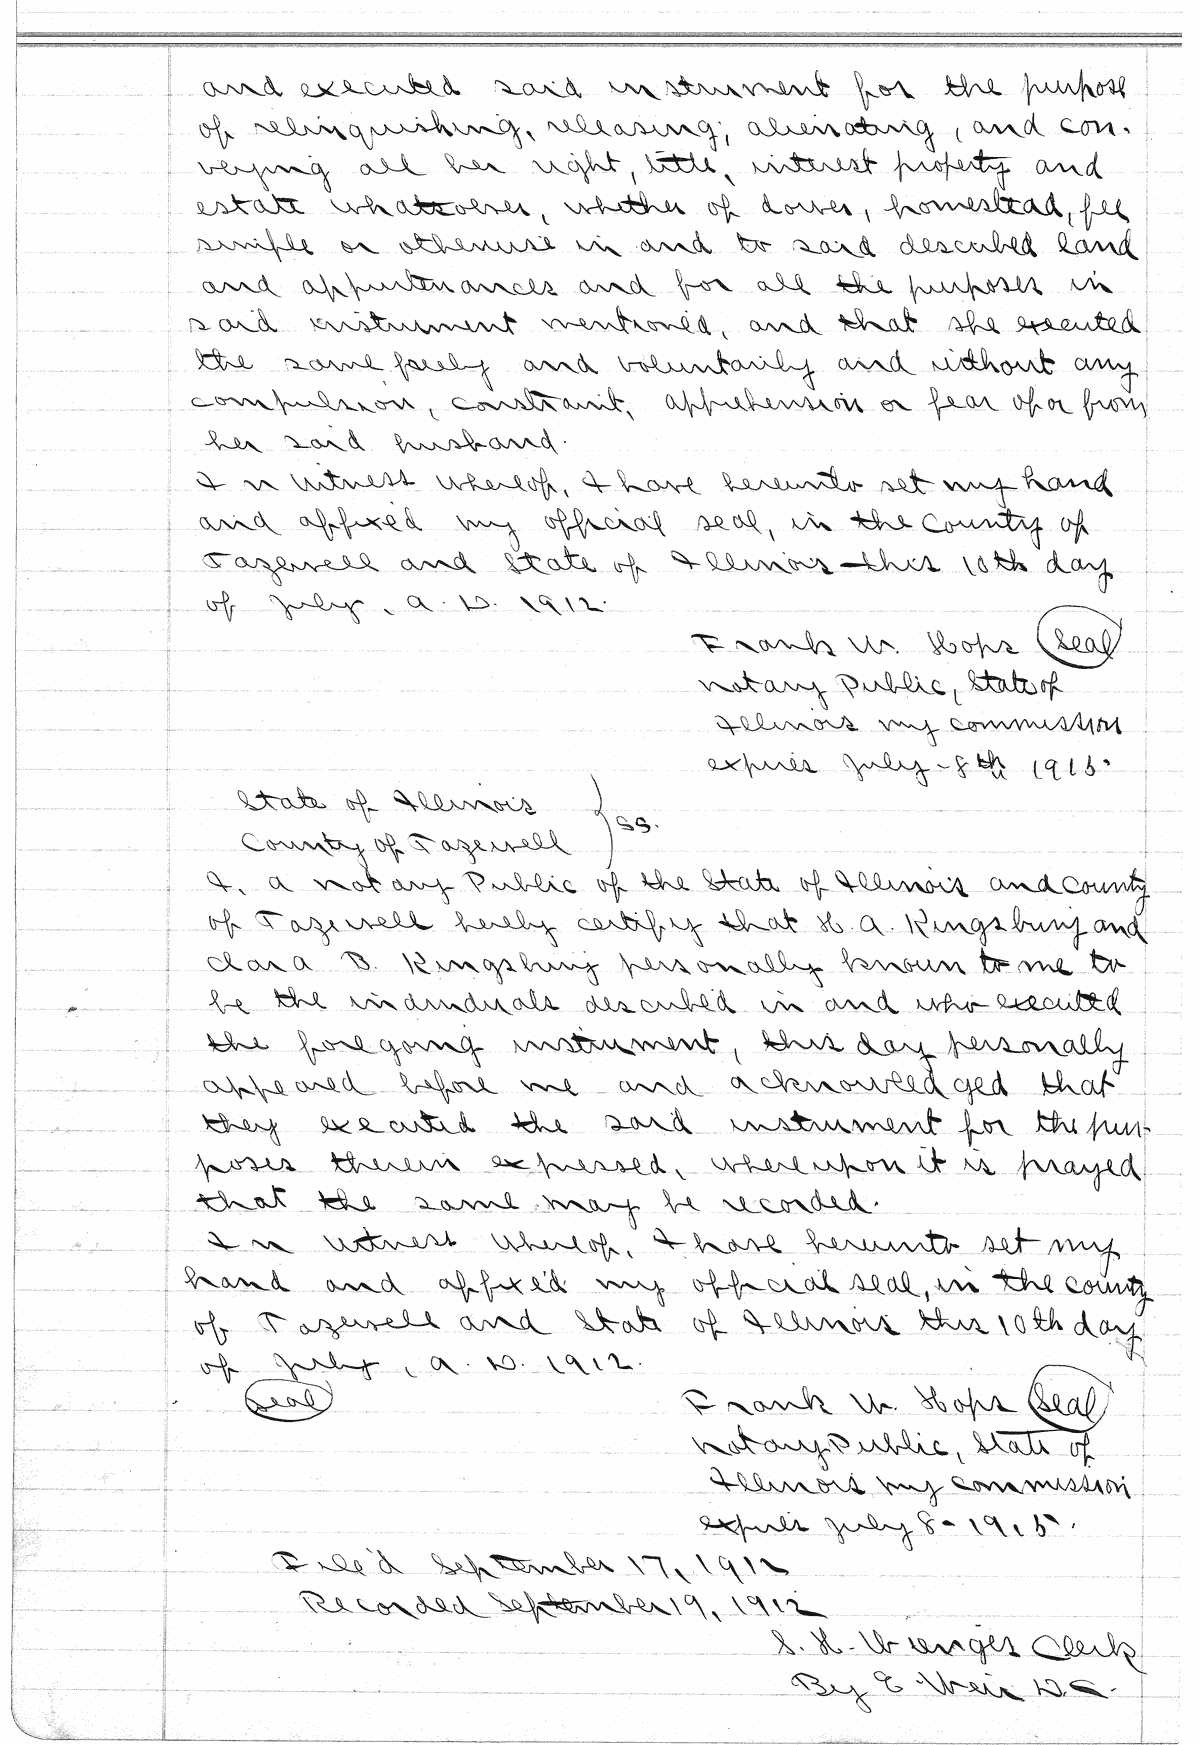 and executed said instrument for the purpose
of relinquishing, releasing, alienating, and con-
veying all her right, title, interest property and
estate whatsoever, whether of dower, homestead, fee
simple or otherwise in and to said described land
and appurtenances and for all the purposes in
said instrument mentioned, and that she executed
the same freely and voluntarily and without any
compulsion, constraint, apprehension or fear of or from
her said husband.
In witness whereof, I have hereunto set my hand
and affixed my official seal, in the County of
Tazewell and State of Illinois this 10th day
of July, A. D. 1912.
Frank W. Hops Seal
Notary Public, State of
Illinois my commission
expires July - 8th 1915.
State of Illinois
County of Tazewell } SS.
I, a Notary Public of the State of Illinois and County
of Tazewell hereby certify that H. A. Kingsbury and
Clara B. Kingsbury personally known to me to
be the individuals described in and who executed
the foregoing instrument, this day personally
appeared before me and acknowledged that
they executed the said instrument for the pur-
poses therein expressed, whereupon it is prayed
that the same may be recorded.
In witness whereof, I have hereunto set my
hand and affixed my official seal, in the county
of Tazewell and State of Illinois this 10th day
of July, A. D. 1912.
Seal
Frank W. Hops Seal
Notary Public, State of
Illinois my commission
expires July 8 - 1915.
Filed September 17, 1912
Recorded September 19, 1912
By E. Weir D.C.